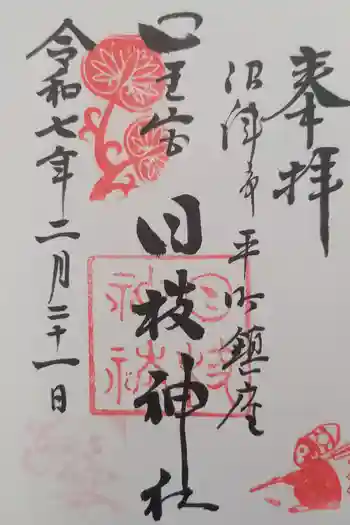 奉拝
沼津市平町鎮座
山王宮
日枝神社
令和七年二月二十一日